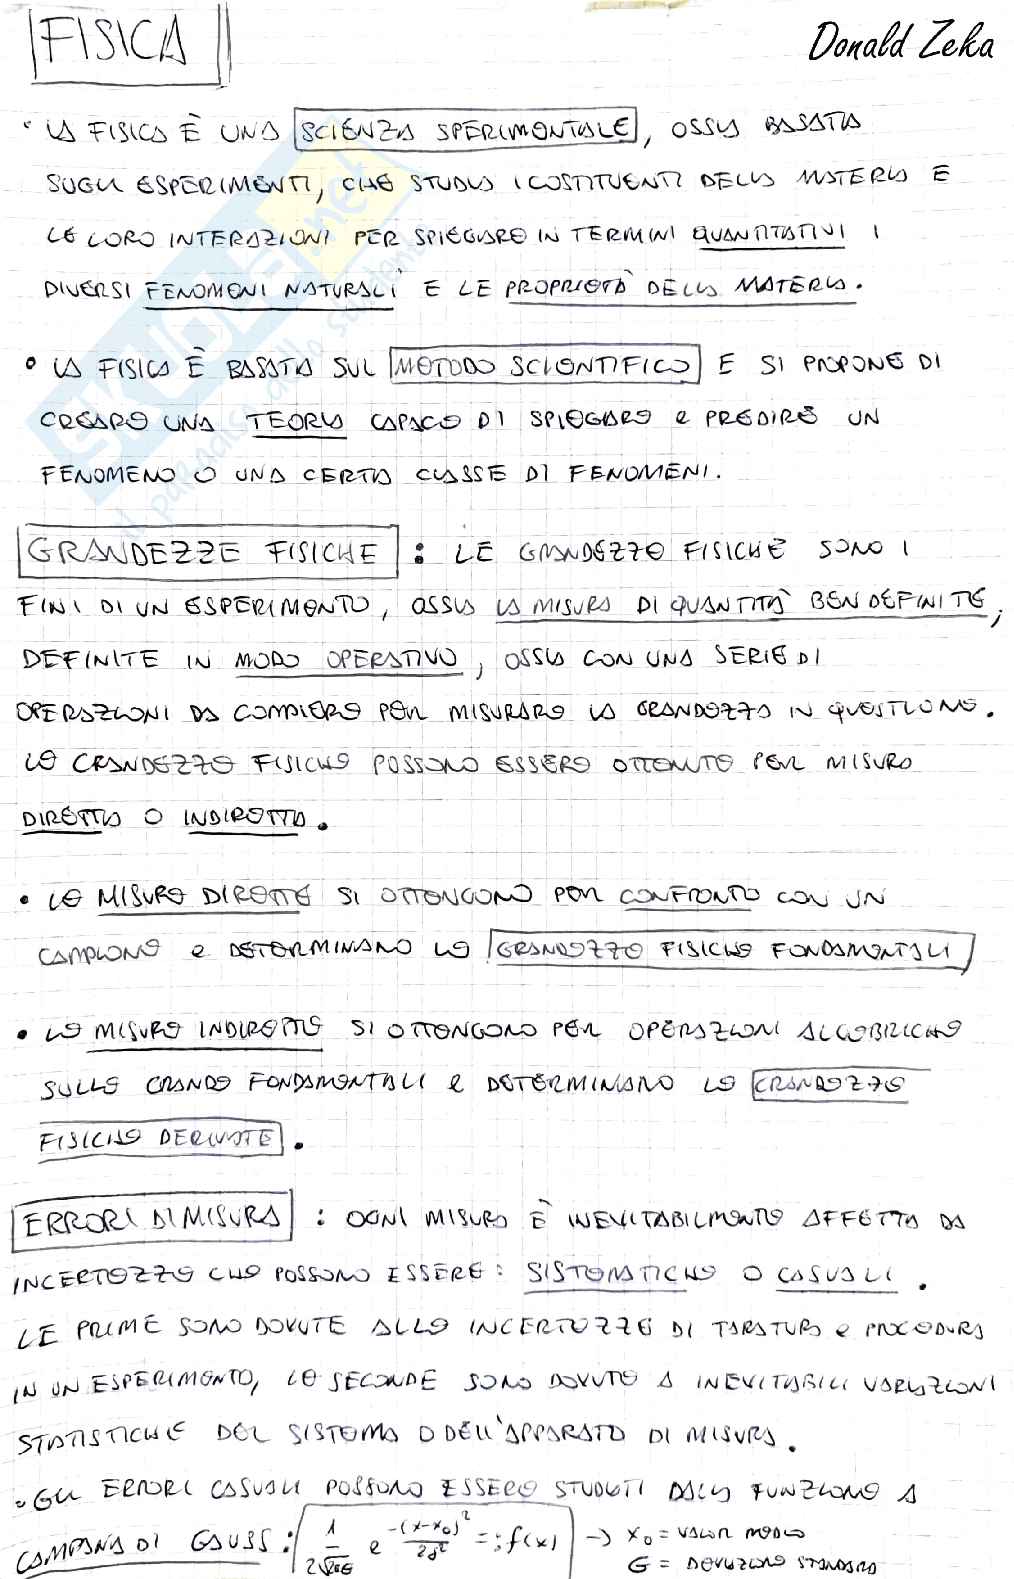 FISICA
Donald Zeka
LA FISICA È UNA SCIENZA SPERIMENTALE, OSSIA BASATA
SUGLI ESPERIMENTI, CHE STUDIA I COSTITUENTI DELLA MATERIA E
LE LORO INTERAZIONI PER SPIEGARE IN TERMINI QUANTITATIVI I
DIVERSI FENOMENI NATURALI E LE PROPRIETÀ DELLA MATERIA.
• LA FISICA È BASATA SUL METODO SCIENTIFICO E SI PROPONE DI
CREARE UNA TEORIA CAPACE DI SPIEGARE e PREDIRE UN
FENOMENO O UNA CERTA CLASSE DI FENOMENI.
GRANDEZZE FISICHE : LE GRANDEZZE FISICHE SONO I
FINI DI UN ESPERIMENTO, OSSIA LA MISURA DI QUANTITÀ BEN DEFINITE,
DEFINITE IN MODO OPERATIVO, OSSIA CON UNA SERIE DI
OPERAZIONI DA COMPIERE PER MISURARE LA GRANDEZZA IN QUESTIONE.
LE GRANDEZZE FISICHE POSSONO ESSERE OTTENUTE PER MISURE
DIRETTA O INDIRETTA.
• LE MISURE DIRETTE SI OTTENGONO PER CONFRONTO CON UN
CAMPIONE e DETERMINANO LE GRANDEZZE FISICHE FONDAMENTALI
• LE MISURE INDIRETTE SI OTTENGONO PER OPERAZIONI ALGEBRICHE
SULLE GRANDE FONDAMENTALI e DETERMINANO LE GRANDEZZE
FISICHE DERIVATE.
ERRORI DI MISURA : OGNI MISURA È INEVITABILMENTE AFFETTA DA
INCERTEZZE CHE POSSONO ESSERE: SISTEMATICHE O CASUALI.
LE PRIME SONO DOVUTE ALLE INCERTEZZE DI TARATURA e PROCEDURA
IN UN ESPERIMENTO, LE SECONDE SONO DOVUTE A INEVITABILI VARIAZIONI
STATISTICHE DEL SISTEMA O DELL'APPARATO DI MISURA.
• GLI ERRORI CASUALI POSSONO ESSERE STUDIATI DALLA FUNZIONE A
CAMPANA DI GAUSS: 1/(2√2πσ) e^(-(x-x₀)²/2σ²) =: f(x) → x₀ = VALOR MEDIO
σ = DEVIAZIONE STANDARD
SKUOLA.net
il paradiso dello studente